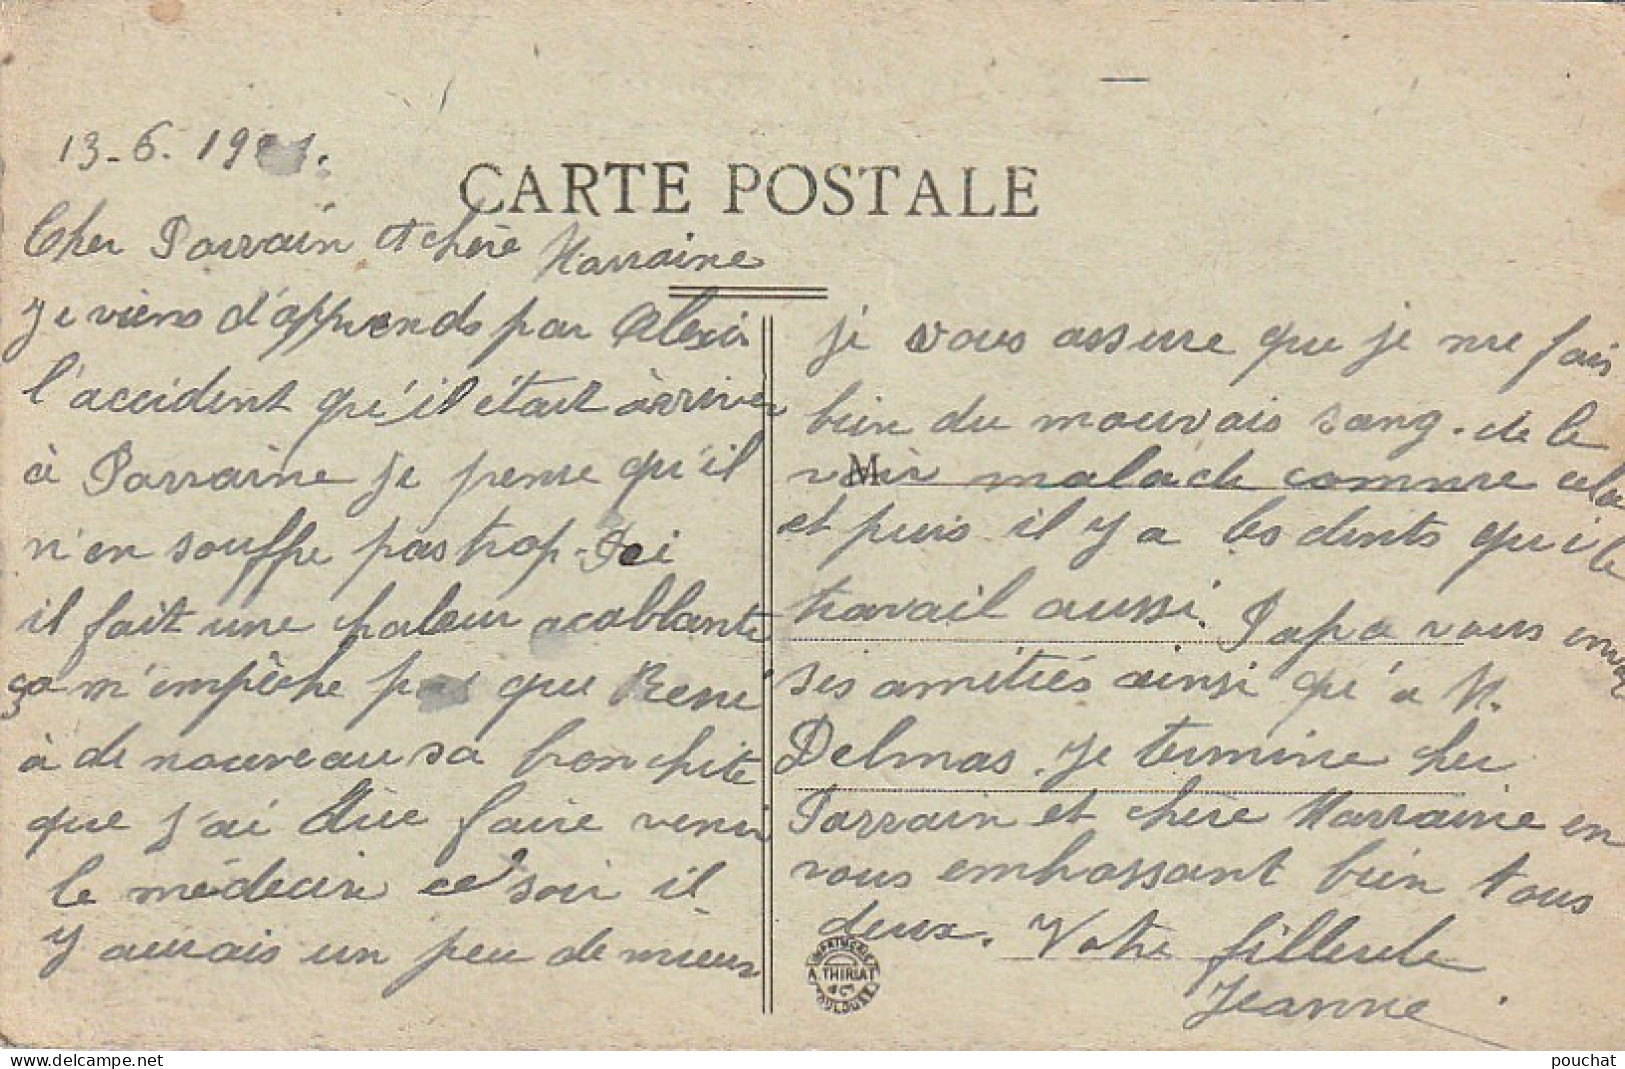 13-6. 19
CARTE POSTALE
Cher Parrain et chère Marraine
je viens d'apprends par Alexis
l'accident qu'il était àrriver
à Parraine je pense qu'il
n'en souffre pas trop. Ici
il fait une chaleur acablante
ça m'empêche pas que René
à de nouveau sa bronchite
que j'ai dûe faire venir
le médecin ce soir il
y aurais un peu de mieux
je vous assure que je me fais
bien du mauvais sang. de le
voir malade comme cela
M
et puis il y a les dents qui le
travail aussi. Papa vous envoi
ses amitiés ainsi qu'a M.
Delmas. Je termine cher
Parrain et chère Marraine en
vous embrassant bien tous
deux. Votre filleule
Jeanne
IMPRIMERIE
A. THIRIAT
TOULOUSE
pouchat